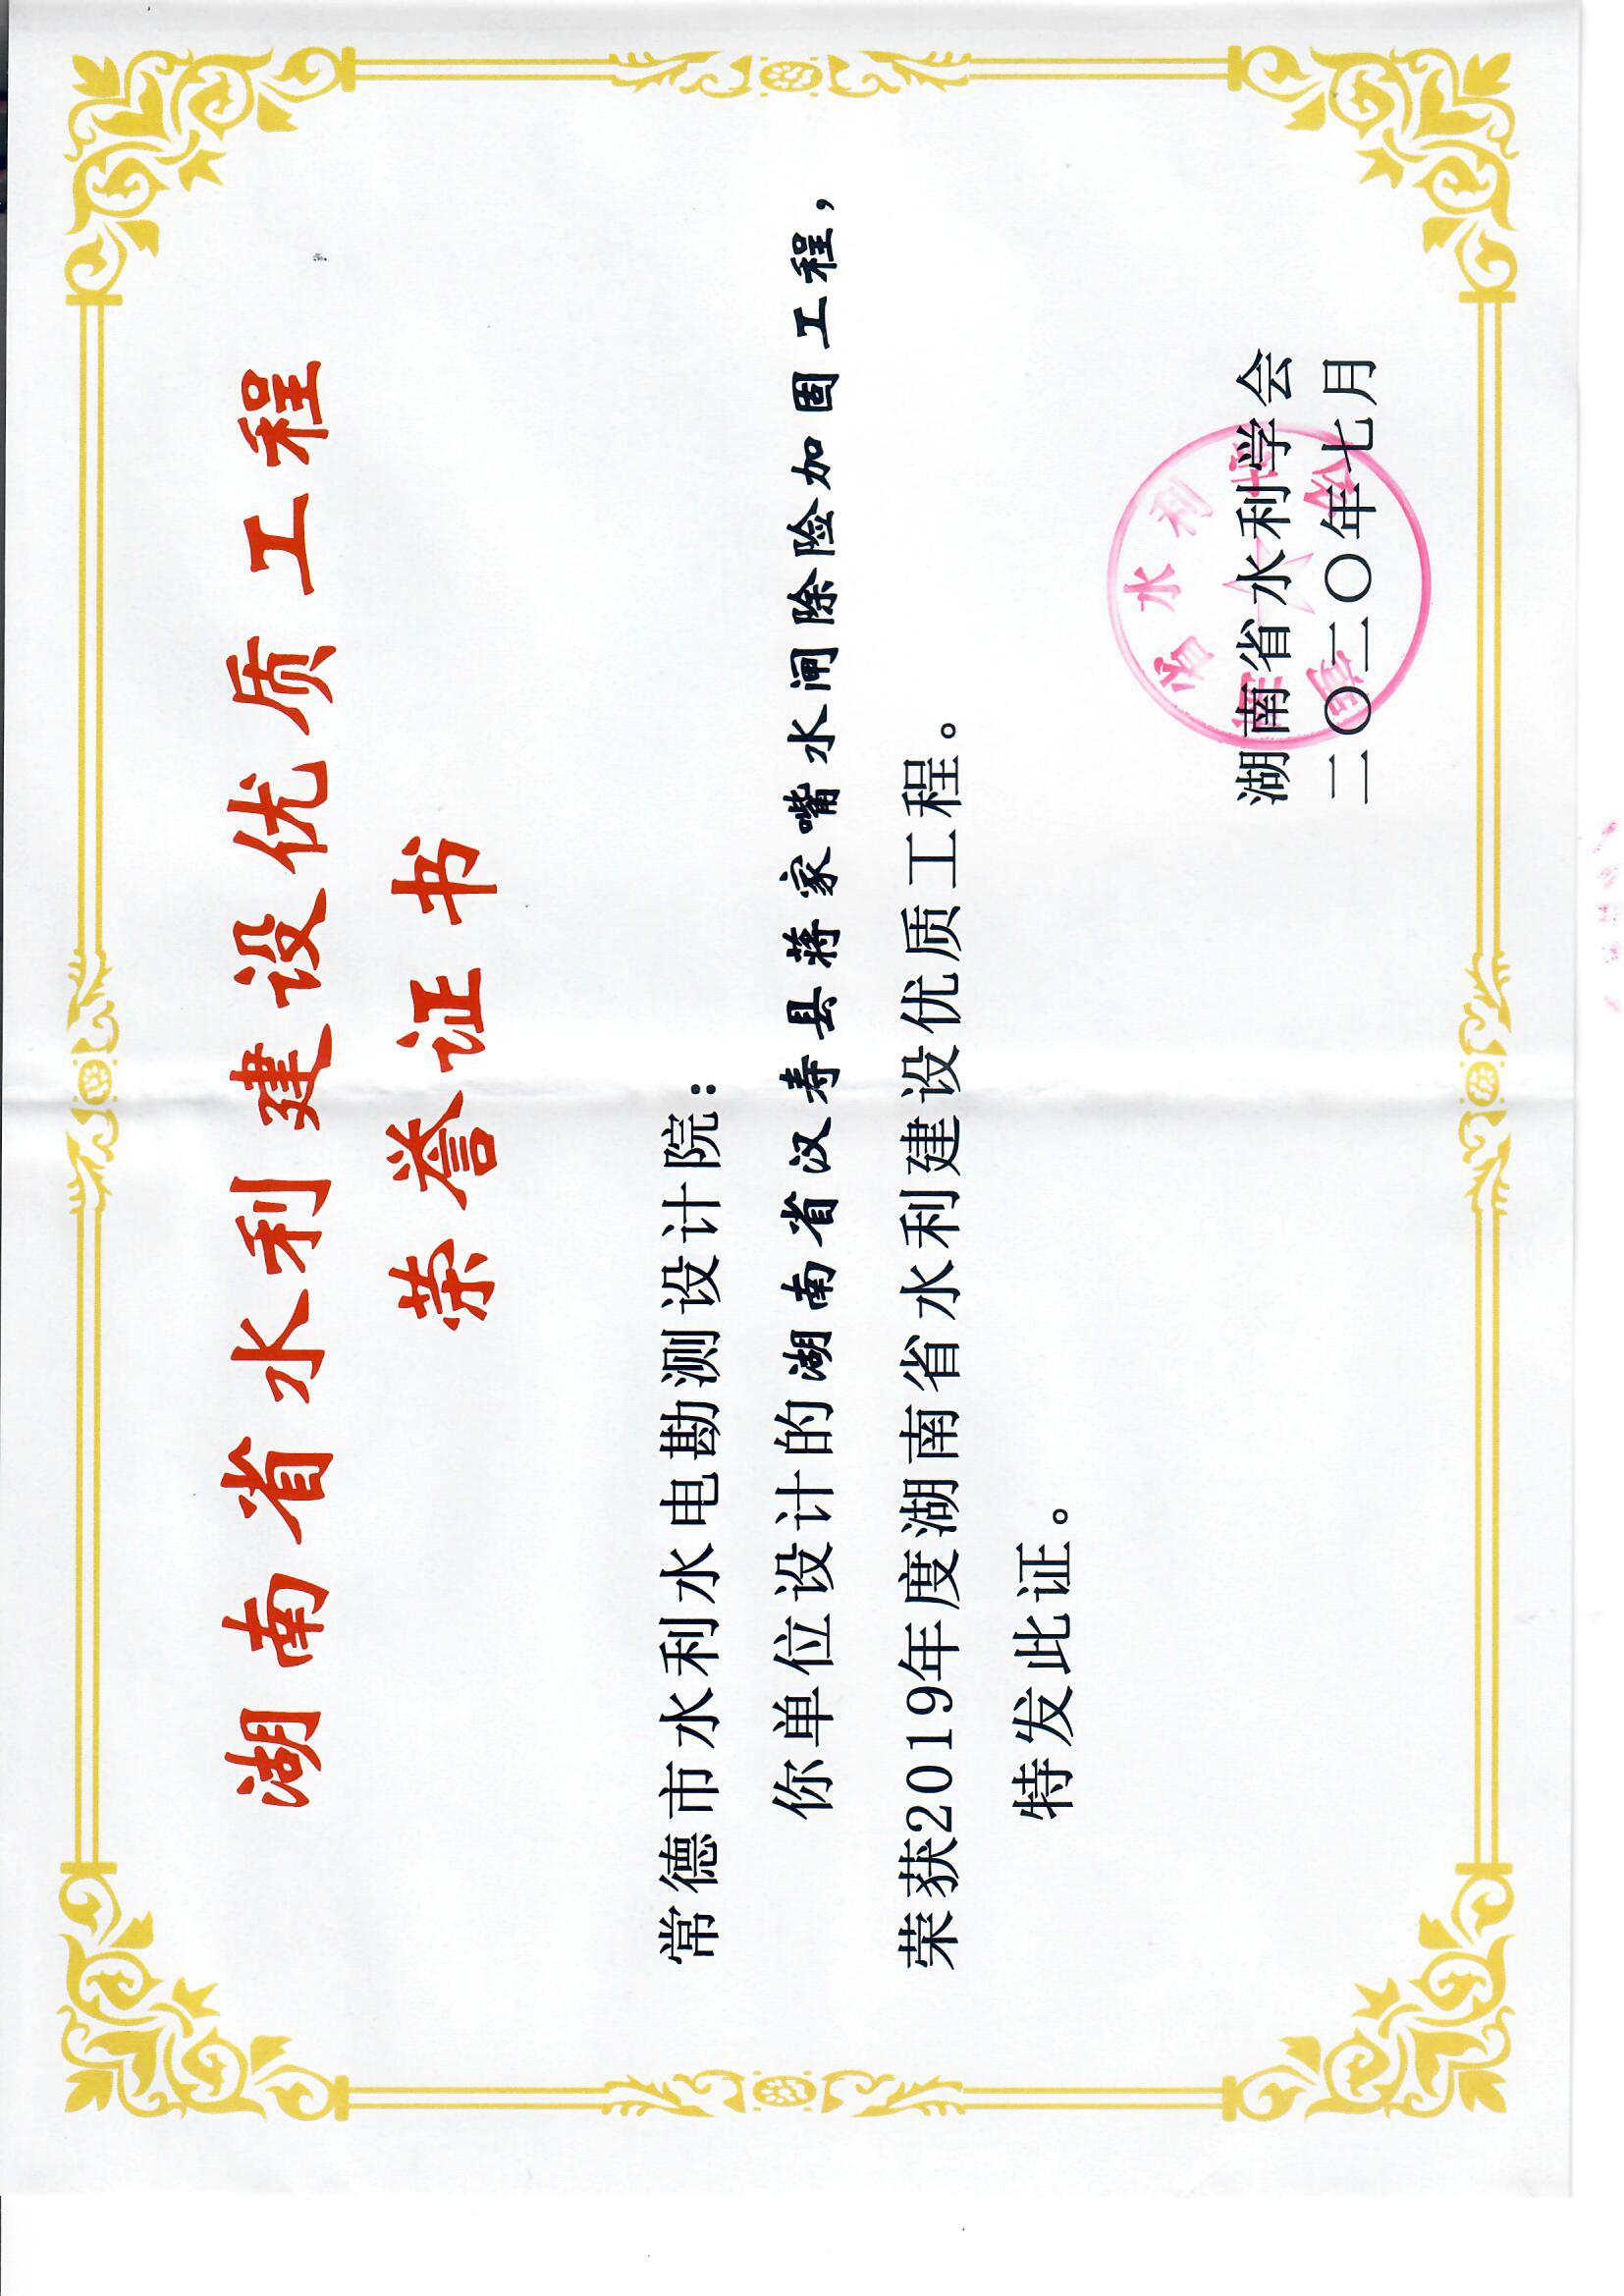 湖南省水利建设优质工程
荣誉证书
常德市水利水电勘测设计院：
你单位设计的湖南省汉寿县蒋家嘴水闸除险加固工程，
荣获2019年度湖南省水利建设优质工程。
特发此证。
湖南省水利学会
二〇二〇年七月
湖南省水利学会